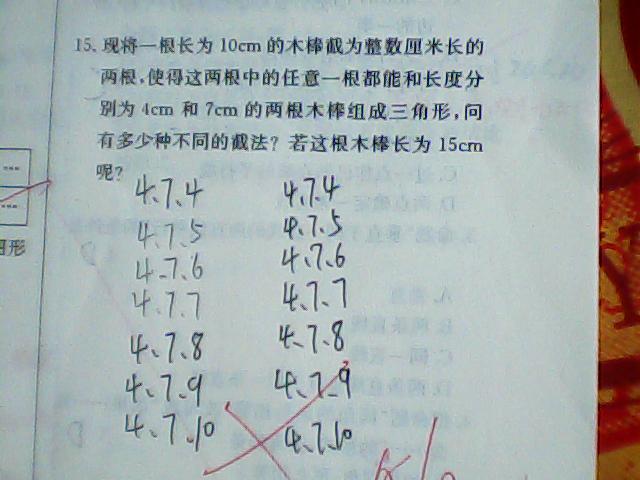 15. 现将一根长为 10cm 的木棒截为整数厘米长的
两根,使得这两根中的任意一根都能和长度分
别为 4cm 和 7cm 的两根木棒组成三角形,问
有多少种不同的截法？若这根木棒长为 15cm
呢？
4、7、4 4、7、4
4、7、5 4、7、5
4、7、6 4、7、6
4、7、7 4、7、7
4、7、8 4、7、8
4、7、9 4、7、9
4、7、10 4、7、10
图形